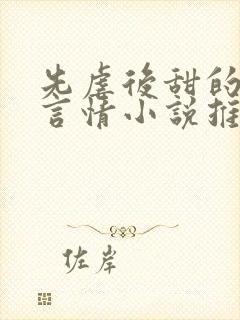 先虐後甜的
言情小說推
佐岸